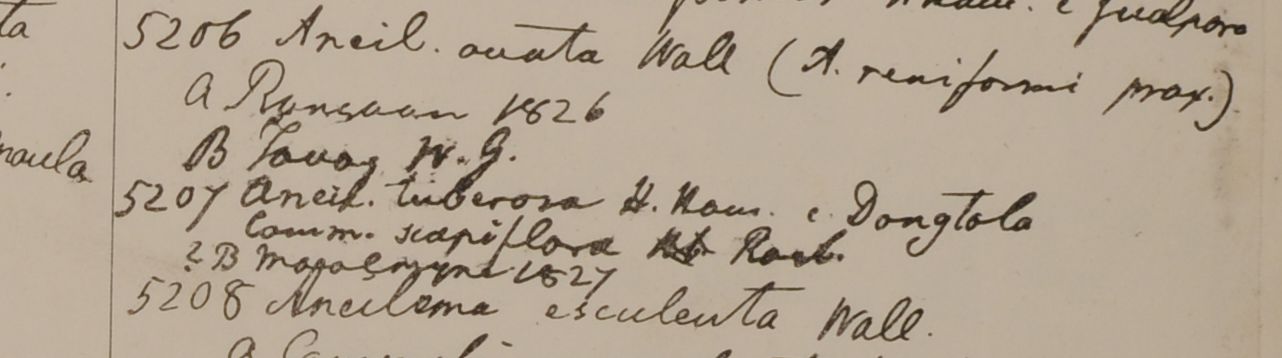 Ham. e Gualpara
5206 Aneil. ovata Wall (A. reniformi prox.)
a Rangoon 1826
B Tavoy W. G.
5207 Aneil. tuberosa H. Ham. e Dongtola
Comm. scapiflora Hb Roxb.
? B 1827
5208 Aneilema esculenta Wall.